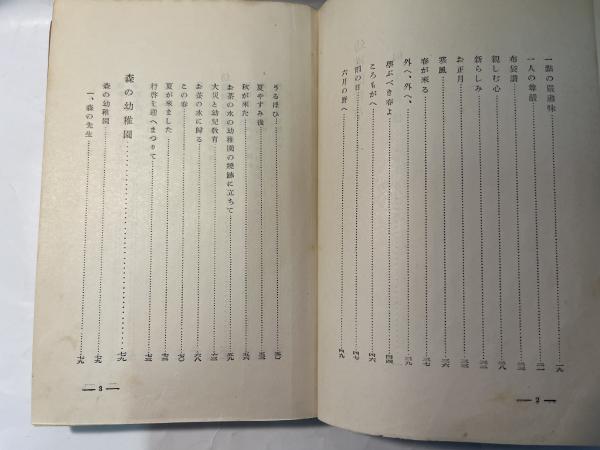 一點の嚴肅味……一九
一人の尊嚴……二一
布袋讃……二二
親しむ心……二八
新らしみ……三二
お正月……三三
寒風……三六
春が來る……三七
外へ、外へ、……三九
學ぶべき春よ……四四
ころもがへ……四六
雨の日……四七
六月の野へ……四九
— 2 —
うるほひ……五〇
夏やすみ後……五三
秋が來た……五六
お茶の水の幼稚園の燒跡に立ちて……五九
大災と幼兒教育……六三
お茶の水に歸る……六八
この春……七〇
夏が來ました……七三
行啓を迎へまつりて……七三
森の幼稚園……七九
森の幼稚園……七九
一、森の先生……七九
— 3 —